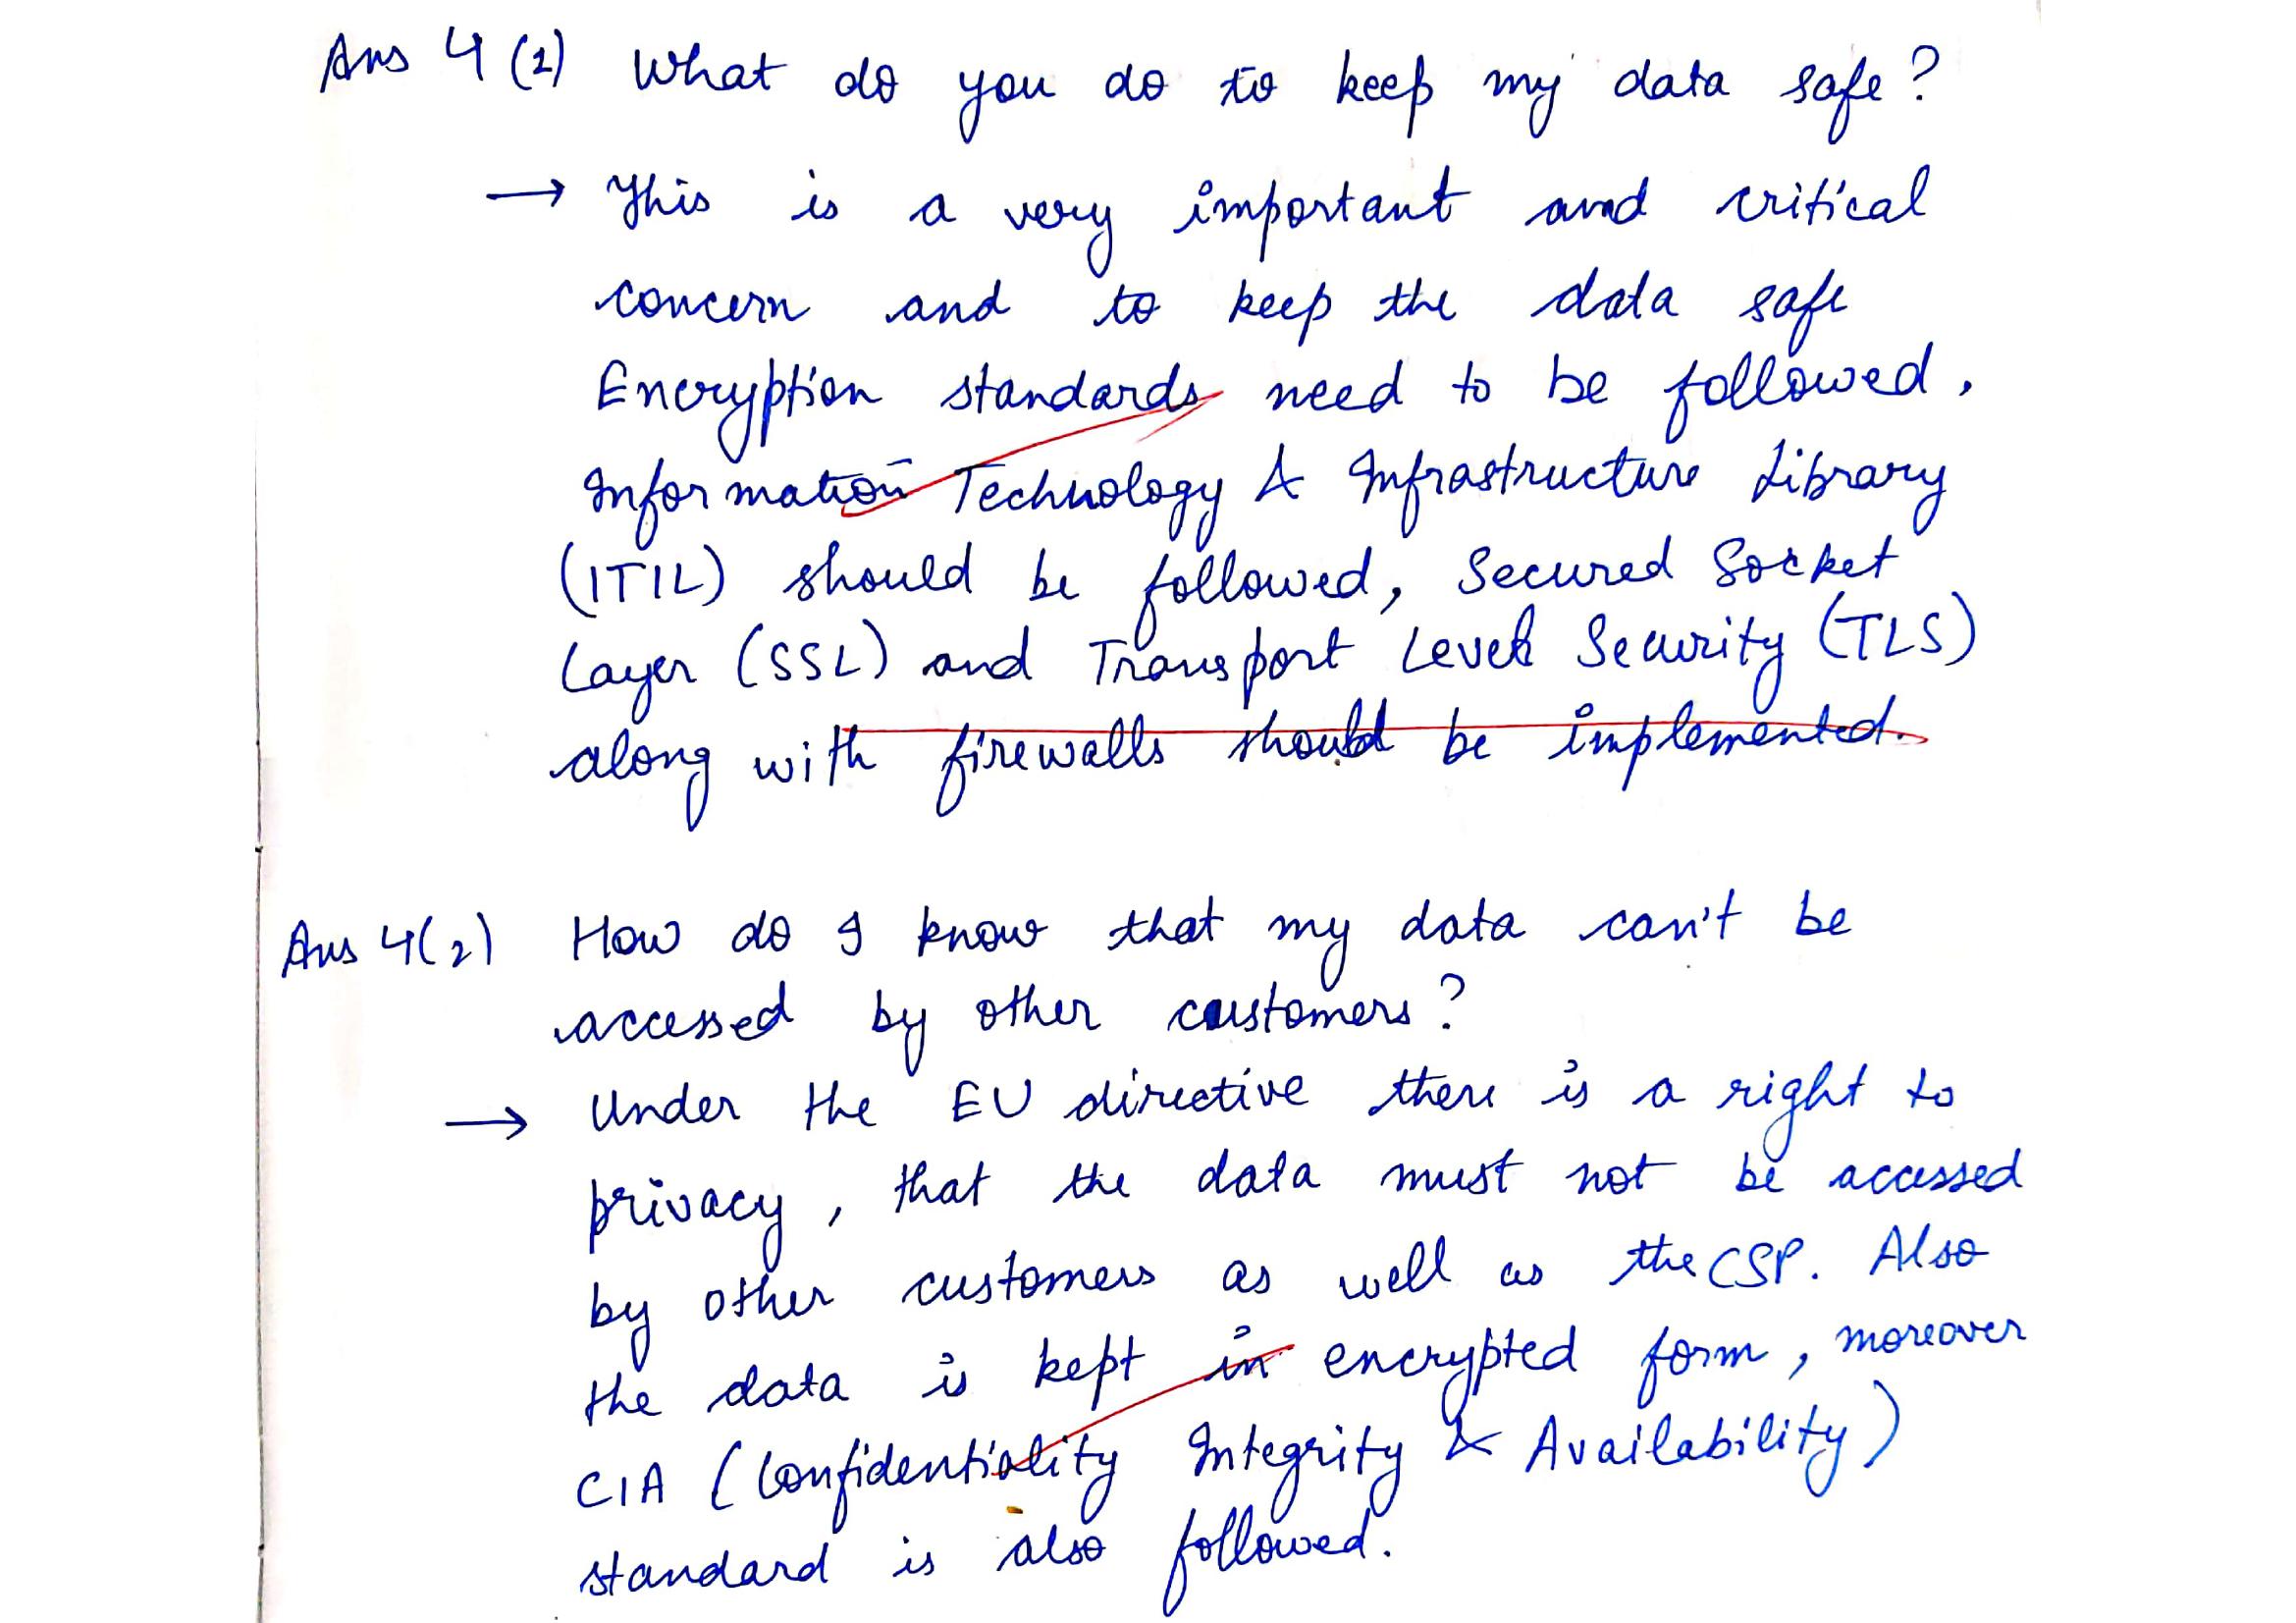 Ans 4 (1) What do you do to keep my data safe?
→ This is a very important and critical
concern and to keep the data safe
Encryption standards need to be followed,
Information Technology & Infrastructure Library
(ITIL) should be followed, Secured Socket
Layer (SSL) and Transport Level Security (TLS)
along with firewalls should be implemented.
Ans 4(2) How do I know that my data can't be
accessed by other customers?
→ Under the EU directive there is a right to
privacy, that the data must not be accessed
by other customers as well as the CSP. Also
the data is kept in encrypted form, moreover
CIA (Confidentiality Integrity & Availability)
standard is also followed.